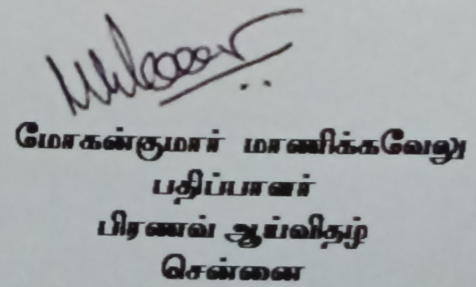 மோகன்குமார் மாணிக்கவேலு
பதிப்பாளர்
பிரணவ் ஆய்விதழ்
சென்னை